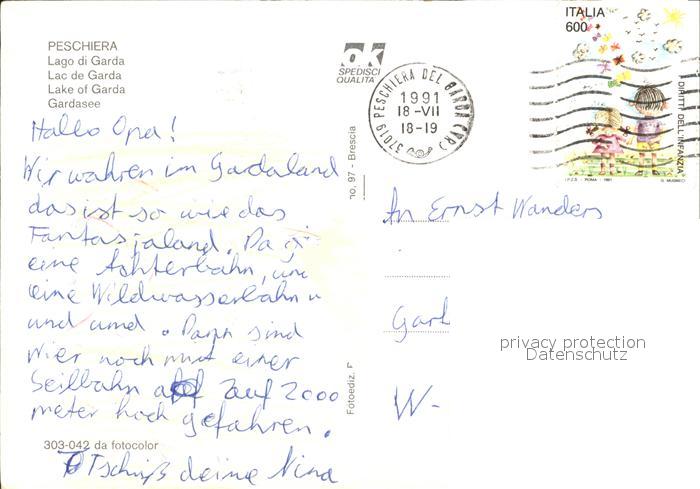 PESCHIERA
Lago di Garda
Lac de Garda
Lake of Garda
Gardasee
Hallo Opa!
Wir wahren im Gardaland
das ist so wie das
Fantasjaland. Da gi
eine Achterbahn, un
eine Wildwasserbahn u
und und. Dann sind
wier noch mit einer
Seilbahn auf 2000
meter hoch gefahren.
303-042 da fotocolor
Tschüß deine Nina
ok
SPEDISCI
QUALITA'
37019 PESCHIERA DEL GARDA (VR)
1991
18-VII
18-19
ITALIA
600
DIRITTI DELL'INFANZIA
I.P.Z.S. - ROMA - 1991
no. 97 - Brescia
Fotoediz.
An Ernst Wanders
Gart
W-
privacy protection
Datenschutz